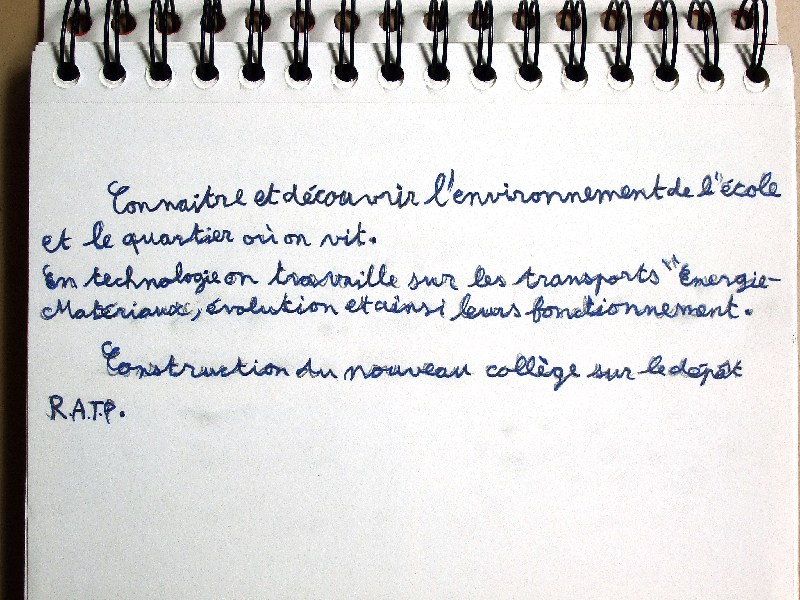 Connaitre et découvrir l'environnement de l'école
et le quartier où on vit.
En technologie on travaille sur les transports "Énergie-
Matériaux, évolution et ainsi leurs fonctionnement.
Construction du nouveau collège sur le dépôt
R.A.T.P.